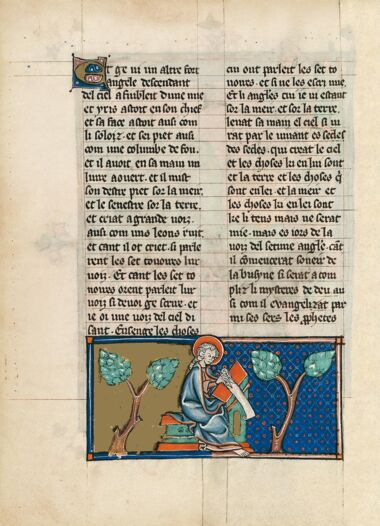 Et ge ui un altre fort
angele descendant
del ciel afubleit dune nue
et yris astoit en son chief
et sa face astoit ausi com
li soloiz. et sei piet ausi
com une columbe de fou.
et il auoit en sa main un
liure aouert. et il mist
son destre piet sor la meir.
et le senestre sor la terre.
et criat a grande uoiz.
ausi com uns leons ruit.
et cant il ot criet. si parle
rent les set tonoires lur
uoiz. Et cant les set to
noires orent parleit lur
uoiz si deuoi ge scrire. et
ie oi une uoiz del ciel di
sant. Ensenge les choses
cui ont parleit les set to
noires. et si ne les escri mie.
Et li angles cui ie ui estant
sor la meir. et sor la terre.
leuat sa main el ciel si iu
rat par le uiuant es sedes
des sedes. qui creat le ciel
et les choses ki en lui sunt
et la terre et les choses q
sont en lei. et la meir et
les choses ki en lei sont
ke li tens mais ne serat
mie. mais es iors de la
uoiz del setime angle. cāt
il comencerat soneir de
la busyne si serat acom
pliz li mysteres de deu au
si com il euangelizat par
mi ses sers les pphetes